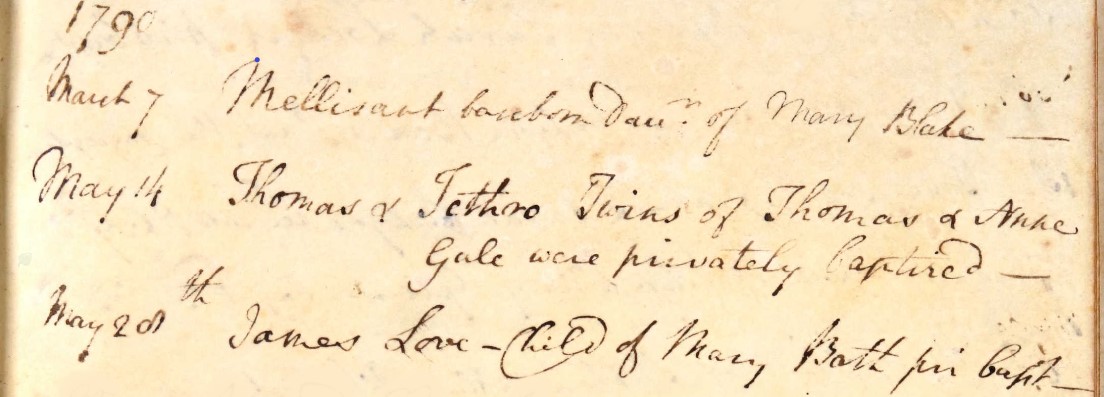 1790
March 7 Mellisant baseborn Daur. of Mary Blake —
May 14 Thomas & Jethro Twins of Thomas & Anne
Gale were privately baptized —
May 28th James Love-Child of Mary Bath pri bapt —